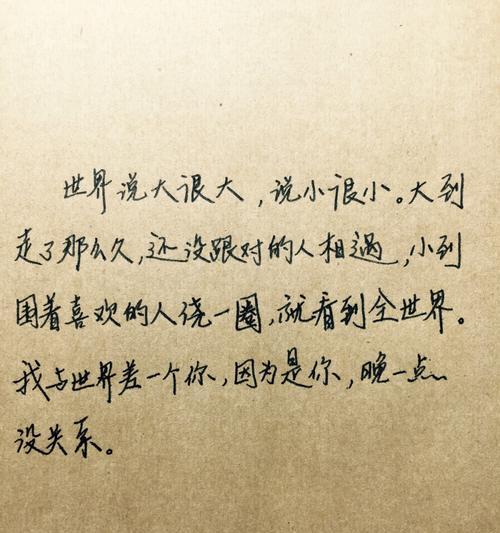 世界说大很大，说小很小。大到
走了那么久，还没跟对的人相遇，小到
围着喜欢的人绕一圈，就看到全世界。
我与世界差一个你，因为是你，晚一点
没关系。